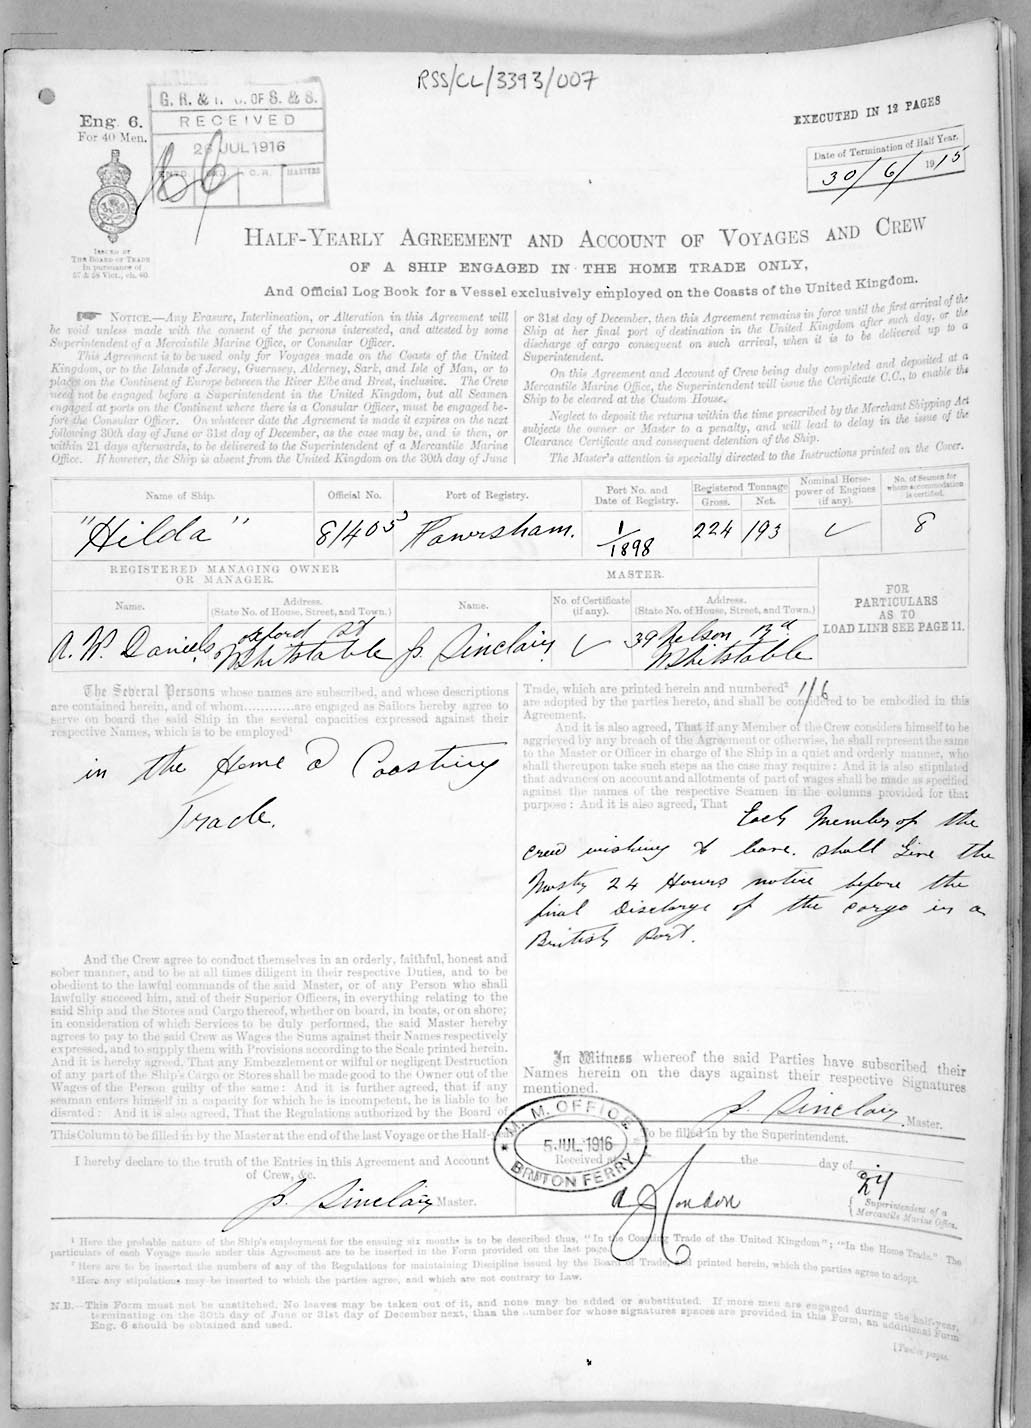 RSS/CL/3393/007
EXECUTED IN 12 PAGES
Eng. 6.
For 40 Men.
G. R. & OF S. & S.
RECEIVED
26 JUL 1916
C. R. MASTERS
ISSUED BY
THE BOARD OF TRADE
In pursuance of
57 & 58 Vict., ch. 60.
Date of Termination of Half Year.
30/6/1915
HALF-YEARLY AGREEMENT AND ACCOUNT OF VOYAGES AND CREW
OF A SHIP ENGAGED IN THE HOME TRADE ONLY,
And Official Log Book for a Vessel exclusively employed on the Coasts of the United Kingdom.
NOTICE.—Any Erasure, Interlineation, or Alteration in this Agreement will
be void unless made with the consent of the persons interested, and attested by some
Superintendent of a Mercantile Marine Office, or Consular Officer.
This Agreement is to be used only for Voyages made on the Coasts of the United
Kingdom, or to the Islands of Jersey, Guernsey, Alderney, Sark, and Isle of Man, or to
places on the Continent of Europe between the River Elbe and Brest, inclusive. The Crew
need not be engaged before a Superintendent in the United Kingdom, but all Seamen
engaged at ports on the Continent where there is a Consular Officer, must be engaged be-
fore the Consular Officer. On whatever date the Agreement is made it expires on the next
following 30th day of June or 31st day of December, as the case may be, and is then, or
within 21 days afterwards, to be delivered to the Superintendent of a Mercantile Marine
Office. If however, the Ship is absent from the United Kingdom on the 30th day of June
or 31st day of December, then this Agreement remains in force until the first arrival of the
Ship at her final port of destination in the United Kingdom after such day, or the
discharge of cargo consequent on such arrival, when it is to be delivered up to a
Superintendent.
On this Agreement and Account of Crew being duly completed and deposited at a
Mercantile Marine Office, the Superintendent will issue the Certificate C.C., to enable the
Ship to be cleared at the Custom House.
Neglect to deposit the returns within the time prescribed by the Merchant Shipping Act
subjects the owner or Master to a penalty, and will lead to delay in the issue of the
Clearance Certificate and consequent detention of the Ship.
The Master's attention is specially directed to the Instructions printed on the Cover.
Name of Ship. Official No. Port of Registry. Port No. and Date of Registry. Registered Tonnage Gross. Net. Nominal Horse-power of Engines (if any). No. of Seamen for whom accommodation is certified.
"Hilda" 81405 Faversham. 1/1898 224 193 8
REGISTERED MANAGING OWNER OR MANAGER. MASTER.
Name. Address. (State No. of House, Street, and Town.) Name. No. of Certificate (if any). Address. (State No. of House, Street, and Town.)
FOR PARTICULARS AS TO LOAD LINE SEE PAGE 11.
A. W. Daniels Oxford St Whitstable J. Sinclair 39 Nelson Rd Whitstable
The Several Persons whose names are subscribed, and whose descriptions
are contained herein, and of whom............are engaged as Sailors hereby agree to
serve on board the said Ship in the several capacities expressed against their
respective Names, which is to be employed¹
in the Home & Coasting
Trade.
And the Crew agree to conduct themselves in an orderly, faithful, honest and
sober manner, and to be at all times diligent in their respective Duties, and to be
obedient to the lawful commands of the said Master, or of any Person who shall
lawfully succeed him, and of their Superior Officers, in everything relating to the
said Ship and the Stores and Cargo thereof, whether on board, in boats, or on shore;
in consideration of which Services to be duly performed, the said Master hereby
agrees to pay to the said Crew as Wages the Sums against their Names respectively
expressed, and to supply them with Provisions according to the Scale printed herein.
And it is hereby agreed, That any Embezzlement or wilful or negligent Destruction
of any part of the Ship's Cargo or Stores shall be made good to the Owner out of the
Wages of the Person guilty of the same: And it is further agreed, that if any
seaman enters himself in a capacity for which he is incompetent, he is liable to be
disrated: And it is also agreed, That the Regulations authorized by the Board of
Trade, which are printed herein and numbered² 1/6
are adopted by the parties hereto, and shall be considered to be embodied in this
Agreement.
And it is also agreed, That if any Member of the Crew considers himself to be
aggrieved by any breach of the Agreement or otherwise, he shall represent the same
to the Master or Officer in charge of the Ship in a quiet and orderly manner, who
shall thereupon take such steps as the case may require: And it is also stipulated
that advances on account and allotments of part of wages shall be made as specified
against the names of the respective Seamen in the columns provided for that
purpose: And it is also agreed, That Each Member of the
crew wishing to leave. shall Give the
Master 24 Hours notice before the
final Discharge of the cargo in a
British Port.
In Witness whereof the said Parties have subscribed their
Names herein on the days against their respective Signatures
mentioned.
J. Sinclair Master.
This Column to be filled in by the Master at the end of the last Voyage or the Half-
I hereby declare to the truth of the Entries in this Agreement and Account
of Crew, &c.
J. Sinclair Master.
M. M. OFFICE
5 JUL 1916
BRITON FERRY
To be filled in by the Superintendent.
Received at the day of
Superintendent of a
Mercantile Marine Office.
¹ Here the probable nature of the Ship's employment for the ensuing six months is to be described thus, "In the Coasting Trade of the United Kingdom"; "In the Home Trade." The
particulars of each Voyage made under this Agreement are to be inserted in the Form provided on the last page.
² Here are to be inserted the numbers of any of the Regulations for maintaining Discipline issued by the Board of Trade, and printed herein, which the parties agree to adopt.
³ Here any stipulations may be inserted to which the parties agree, and which are not contrary to Law.
N.B.—This Form must not be unstitched. No leaves may be taken out of it, and none may be added or substituted. If more men are engaged during the half-year,
terminating on the 30th day of June or 31st day of December next, than the number for whose signatures spaces are provided in this Form, an additional Form
Eng. 6 should be obtained and used.
[Twelve pages.